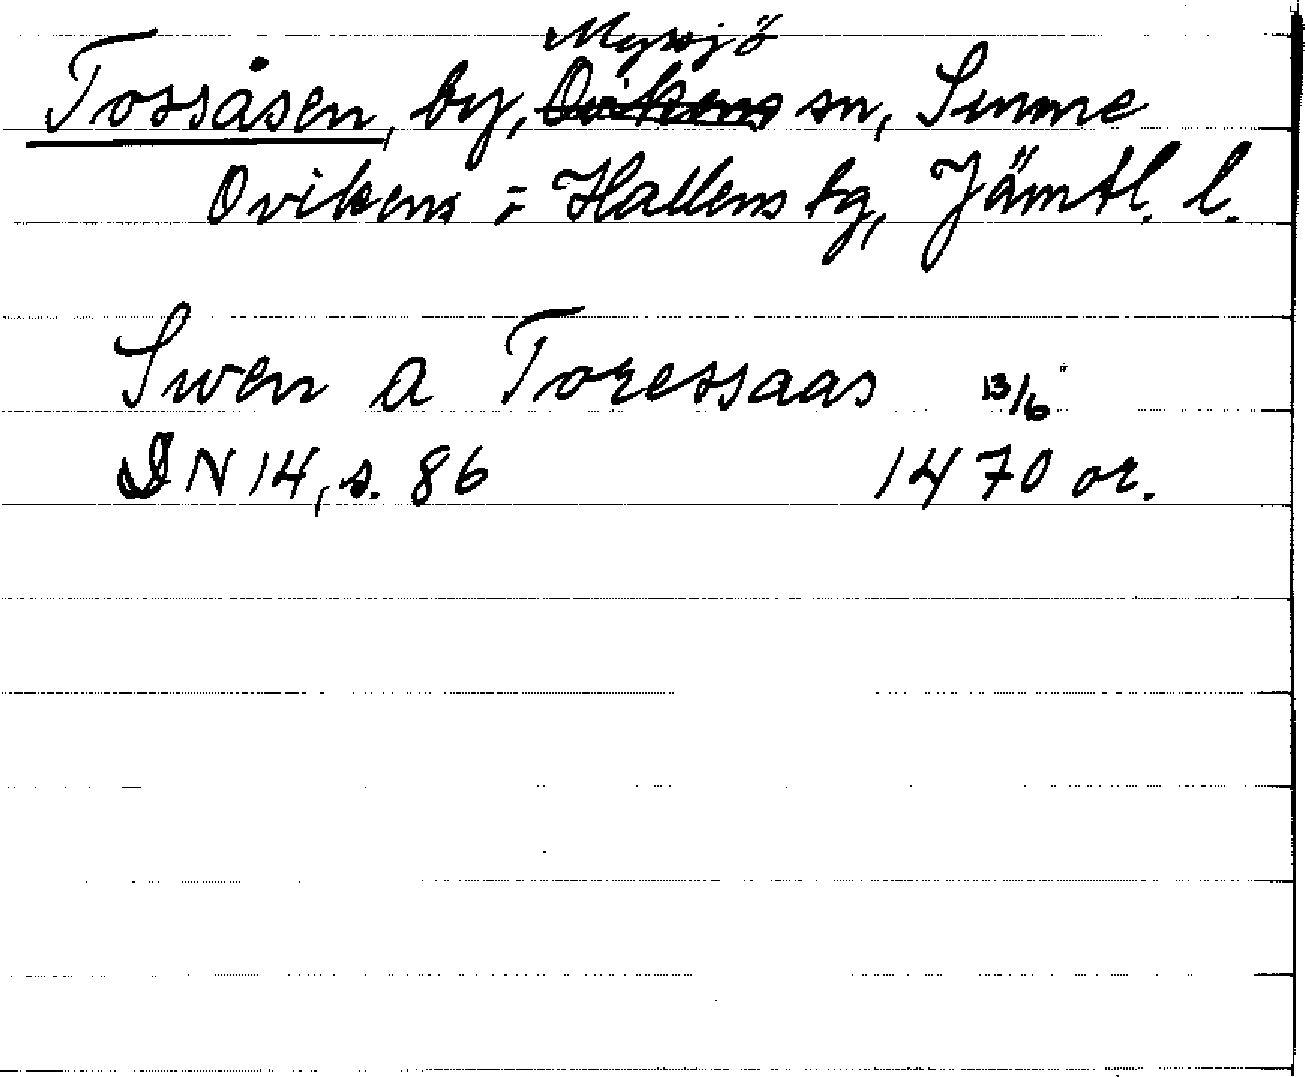 Myssjö
Tossåsen, by, Ovikens sn, Sunne
Ovikens = Hallens tg, Jämtl. l.
Swen a Toressaas 13/6
DN 14, s. 86 1470 or.